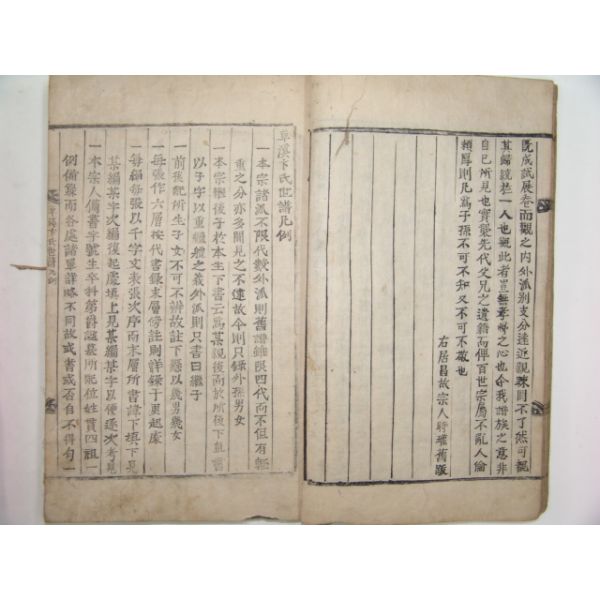 旣成試展卷而觀之內外派別支分遠近親踈囙不了然可覩
其歸設恭一人也觀此者豈無孝悌之心也今我譜族之意非
自己所見也實襲先代父兄之遺籍而俾百世宗屬不亂人倫
賴厚則凡爲子孫不可不知又不可不敬也
右居昌故宗人時璀舊跋
草溪卞氏世譜凡例
一本宗諸派不限代數外派則舊譜雖限四代而不但有輕
重之分亦多聞見之不逮故今則只錄外孫男女
一本宗繼後子於本生下書云爲某親後而於所後下直書
以子字以重繼體之義外派則只書曰繼子
一前後配所生子女不可不辨故註下懸以幾男幾女
一每張作六層按代書錄末層傍註則詳錄于更起處
一每編每張以千字文表張次序而末層所書諱下塡下見
某編某字次編復起處塡上見某編某字以便逐次考見
一本宗人備書字號生卒科第爵諡墓所配位姓貫四祖一
例備錄而各處諸單詳略不同故或書或否自不得句一